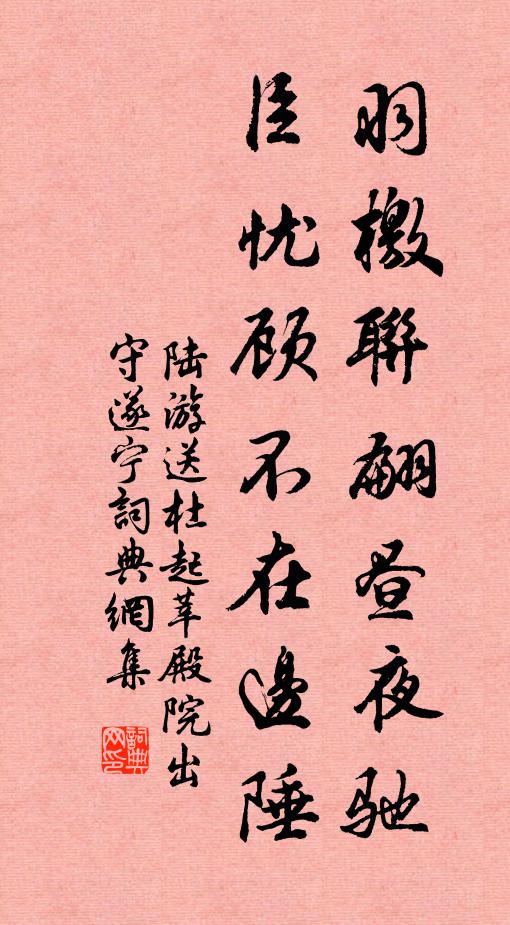 羽檄聯翩晝夜馳
臣忧顾不在邊陲
陆游送杜起莘殿院出
守遂宁詞典網集
詞典网印